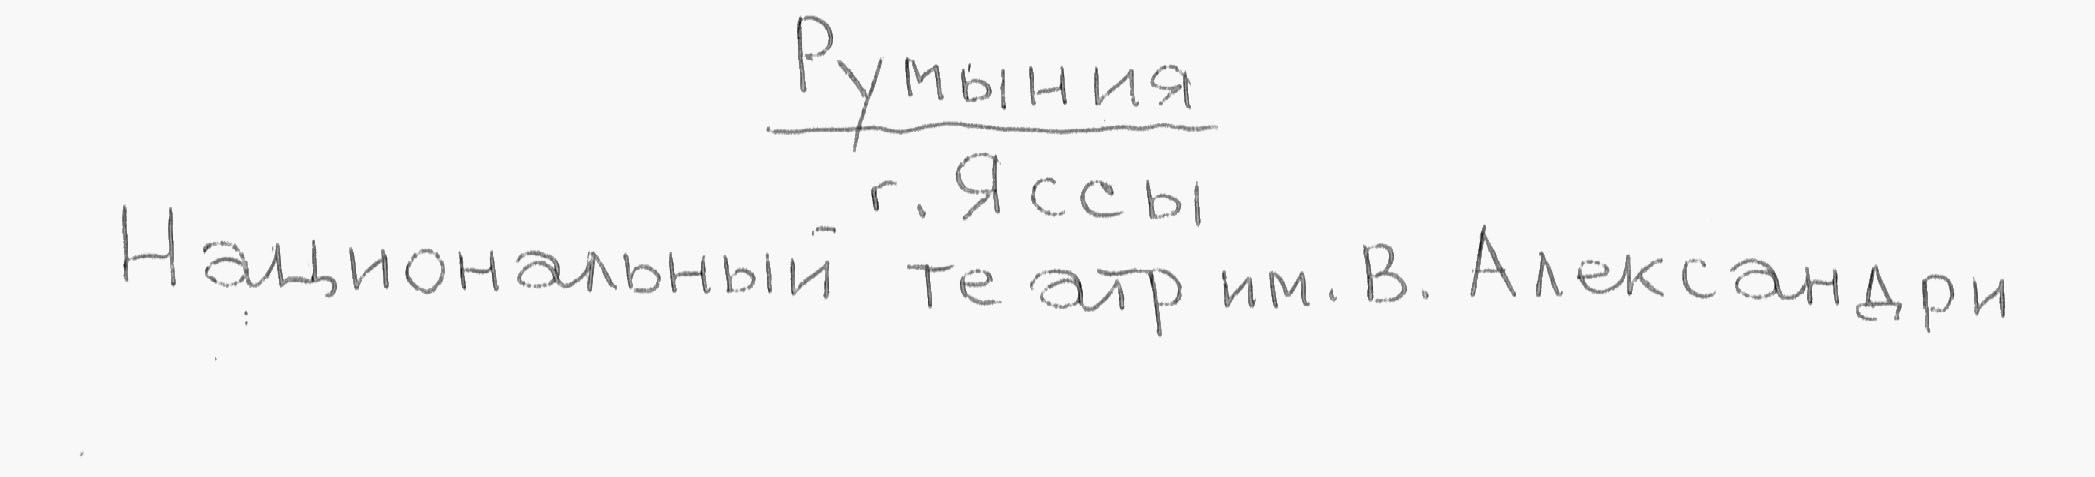 Румыния
г. Яссы
Национальный театр им. В. Александри